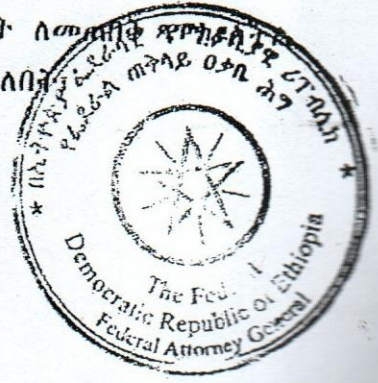 ለመጠበቅ
በኢትዮጵያ ፌደራላዊ ዲሞክራሲያዊ ሪፐብሊክ
የፌደራል ጠቅላይ ዐቃቤ ሕግ
The Fed
Democratic Republic of Ethiopia
Federal Attorney General